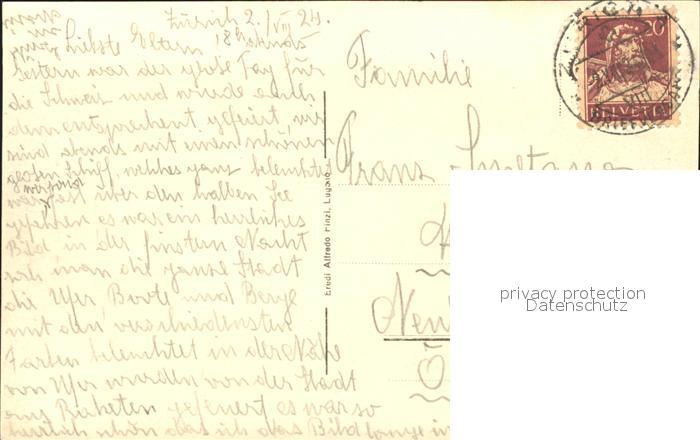 Zürich 2./VII 24.
Liebste Eltern 18h abends
Gestern war der große Tag für
die Schweiz und wurde auch
dem entsprechent gefeiert, wir
sind abends mit einem schönen
großen Schiff, welches ganz beleuchtet
war, über den halben See
gefahren es war ein herrliches
Bild in der finstern Nacht
sah man die ganze Stadt
die Ufer Boote und Berge
mit den verschiedensten
Farben beleuchtet in der Nähe
von Ufer wurden von der Stadt
aus Racketen gefeuert es war so
herrlich schön das ich das Bild lange
Familie
Franz Smetana
Ö
Eredi Alfredo Finzi, Lugano
20
HELVETIA
ZÜRICH
BRIEFVERSAND
privacy protection
Datenschutz